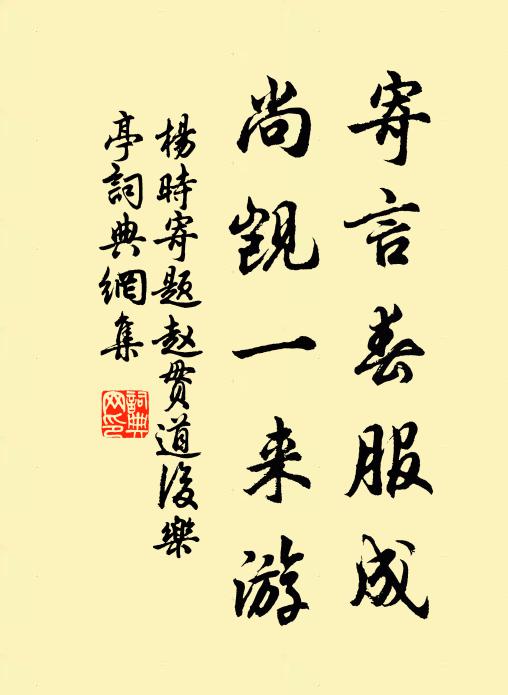 寄言春服成
尚觊一来游
楊時寄题赵贯道後樂
亭詞典網集
詞典
网印